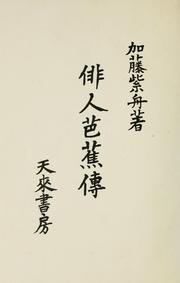 加藤紫舟著
俳人芭蕉傳
天來書房